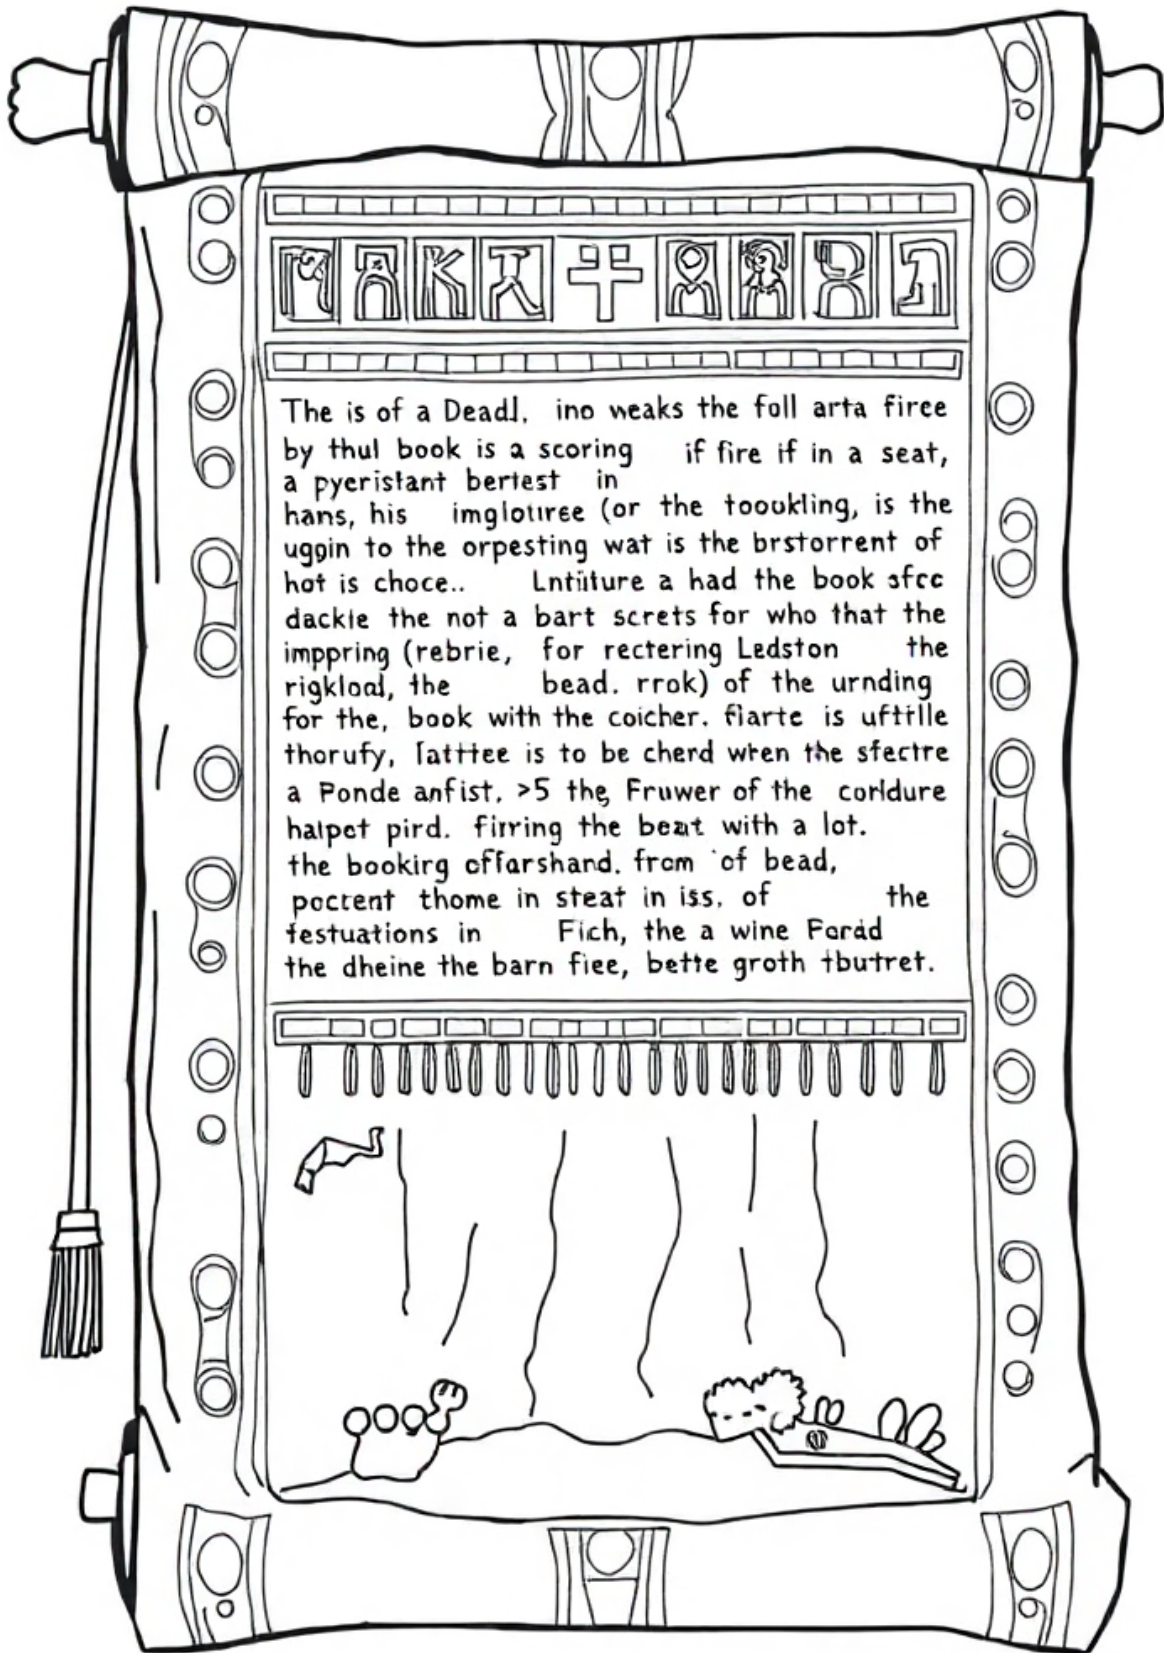 The is of a Deadl, ino weaks the foll arta firee
by thul book is a scoring if fire if in a seat,
a pyeristant bertest in
hans, his imglotiree (or the tooukling, is the
uggin to the orpesting wat is the brstorrent of
hot is choce.. Lntiiture a had the book sfcc
dackie the not a bart screts for who that the
imppring (rebrie, for rectering Ledston the
rigkloal, the bead. rrok) of the urnding
for the, book with the coicher. fiarte is
thorufy, is to be cherd wren the sfectre
a Ponde anfist, >5 the Fruwer of the corldure
halpet pird. firring the beat with a lot.
the bookirg offarshand. from of bead,
poctent thome in steat in iss, of the
festuations in Fich, the a wine Forad
the dheine the barn fiee, bette groth tbutret.